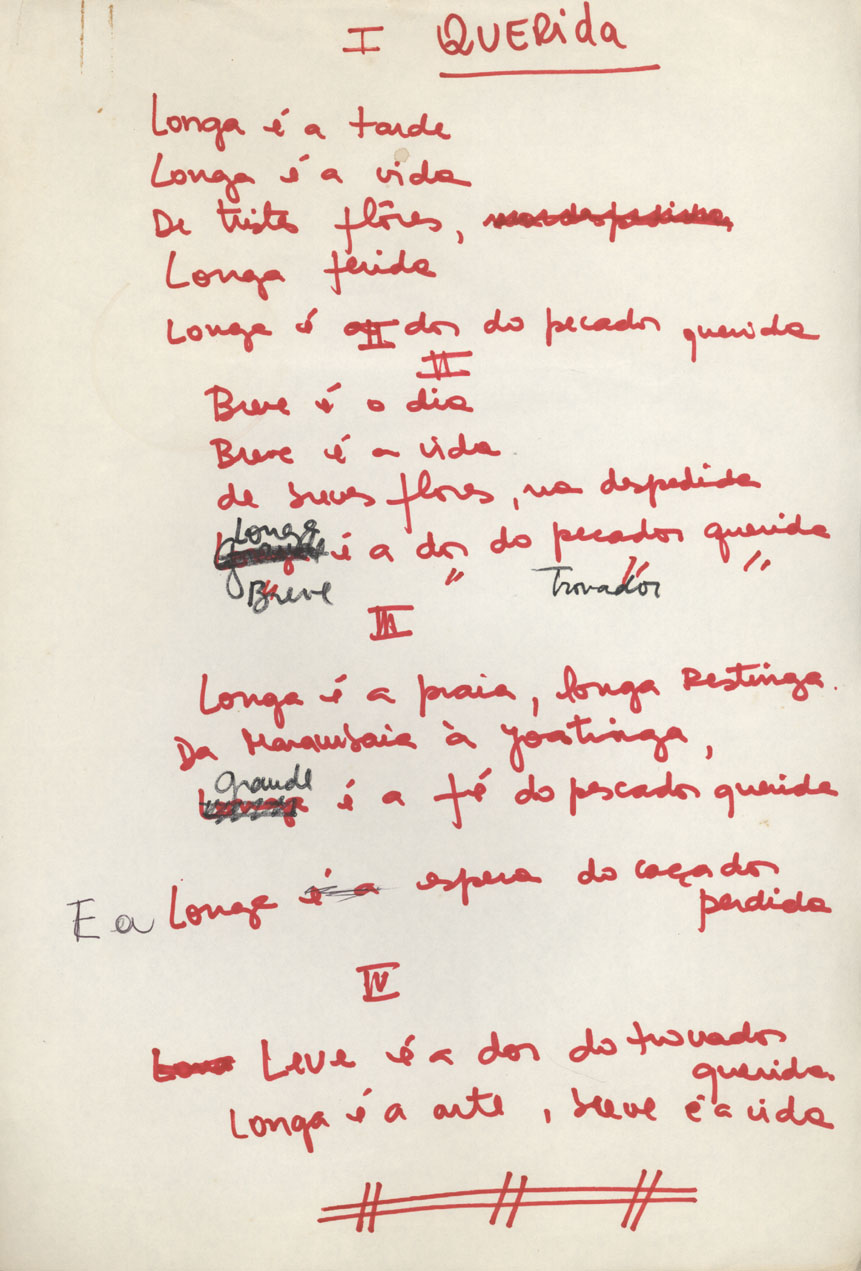 I QUERIDA
Longa é a tarde
Longa é a vida
De tristes flôres,
Longa ferida
Longa é a dor do pecador querida
II
Breve é o dia
Breve é a vida
de breves flores, na despedida
Longa é a dor do pecador querida
Breve " Trovador " "
III
Longa é a praia, longa Restinga.
Da Marambaia à Joatinga,
grande é a fé do pescador querida
E a Longa é a espera do caçador
perdida
IV
Leve é a dor do trovador
querida
Longa é a arte, breve é a vida